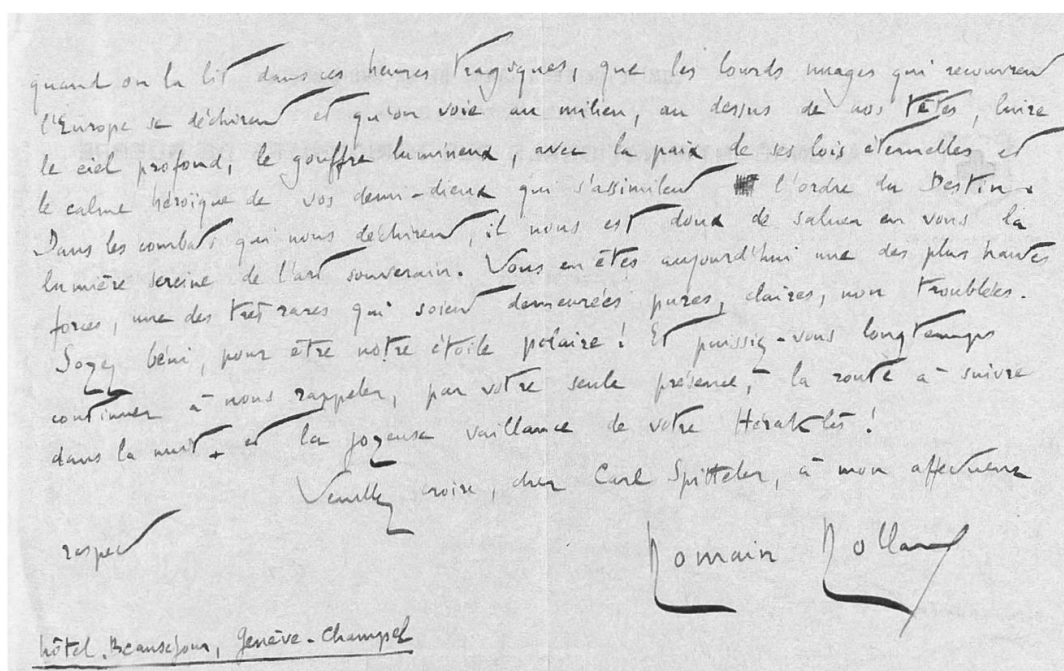 quand on la lit dans ces heures tragiques, que les lourds nuages qui recouvrent
l'Europe se déchirent et qu'on voie au milieu, au dessus de nos têtes, luire
le ciel profond, le gouffre lumineux, avec la paix de ses lois éternelles et
le calme héroïque de vos demi-dieux qui s'assimilent l'ordre du Destin.
Dans les combats qui nous déchirent, il nous est doux de saluer en vous la
lumière sereine de l'art souverain. Vous en êtes aujourd'hui une des plus hautes
forces, une des très rares qui soient demeurées pures, claires, non troublées.
Soyez béni, pour être notre étoile polaire ! Et puissiez-vous longtemps
continuer à nous rappeler, par votre seule présence, la route à suivre
dans la nuit, et la joyeuse vaillance de votre Héraklès !
Veuillez croire, cher Carl Spitteler, à mon affectueux
respect
Romain Rolland
hôtel Beauséjour, Genève-Champel